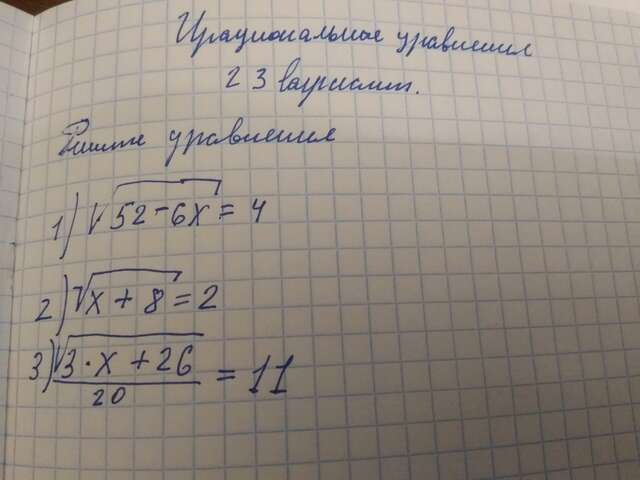 Ирациональные уравнения
23 вариант.
Решите уравнения
1) √52-6x = 4
2) √x + 8 = 2
3) √3·x + 26 / 20 = 11